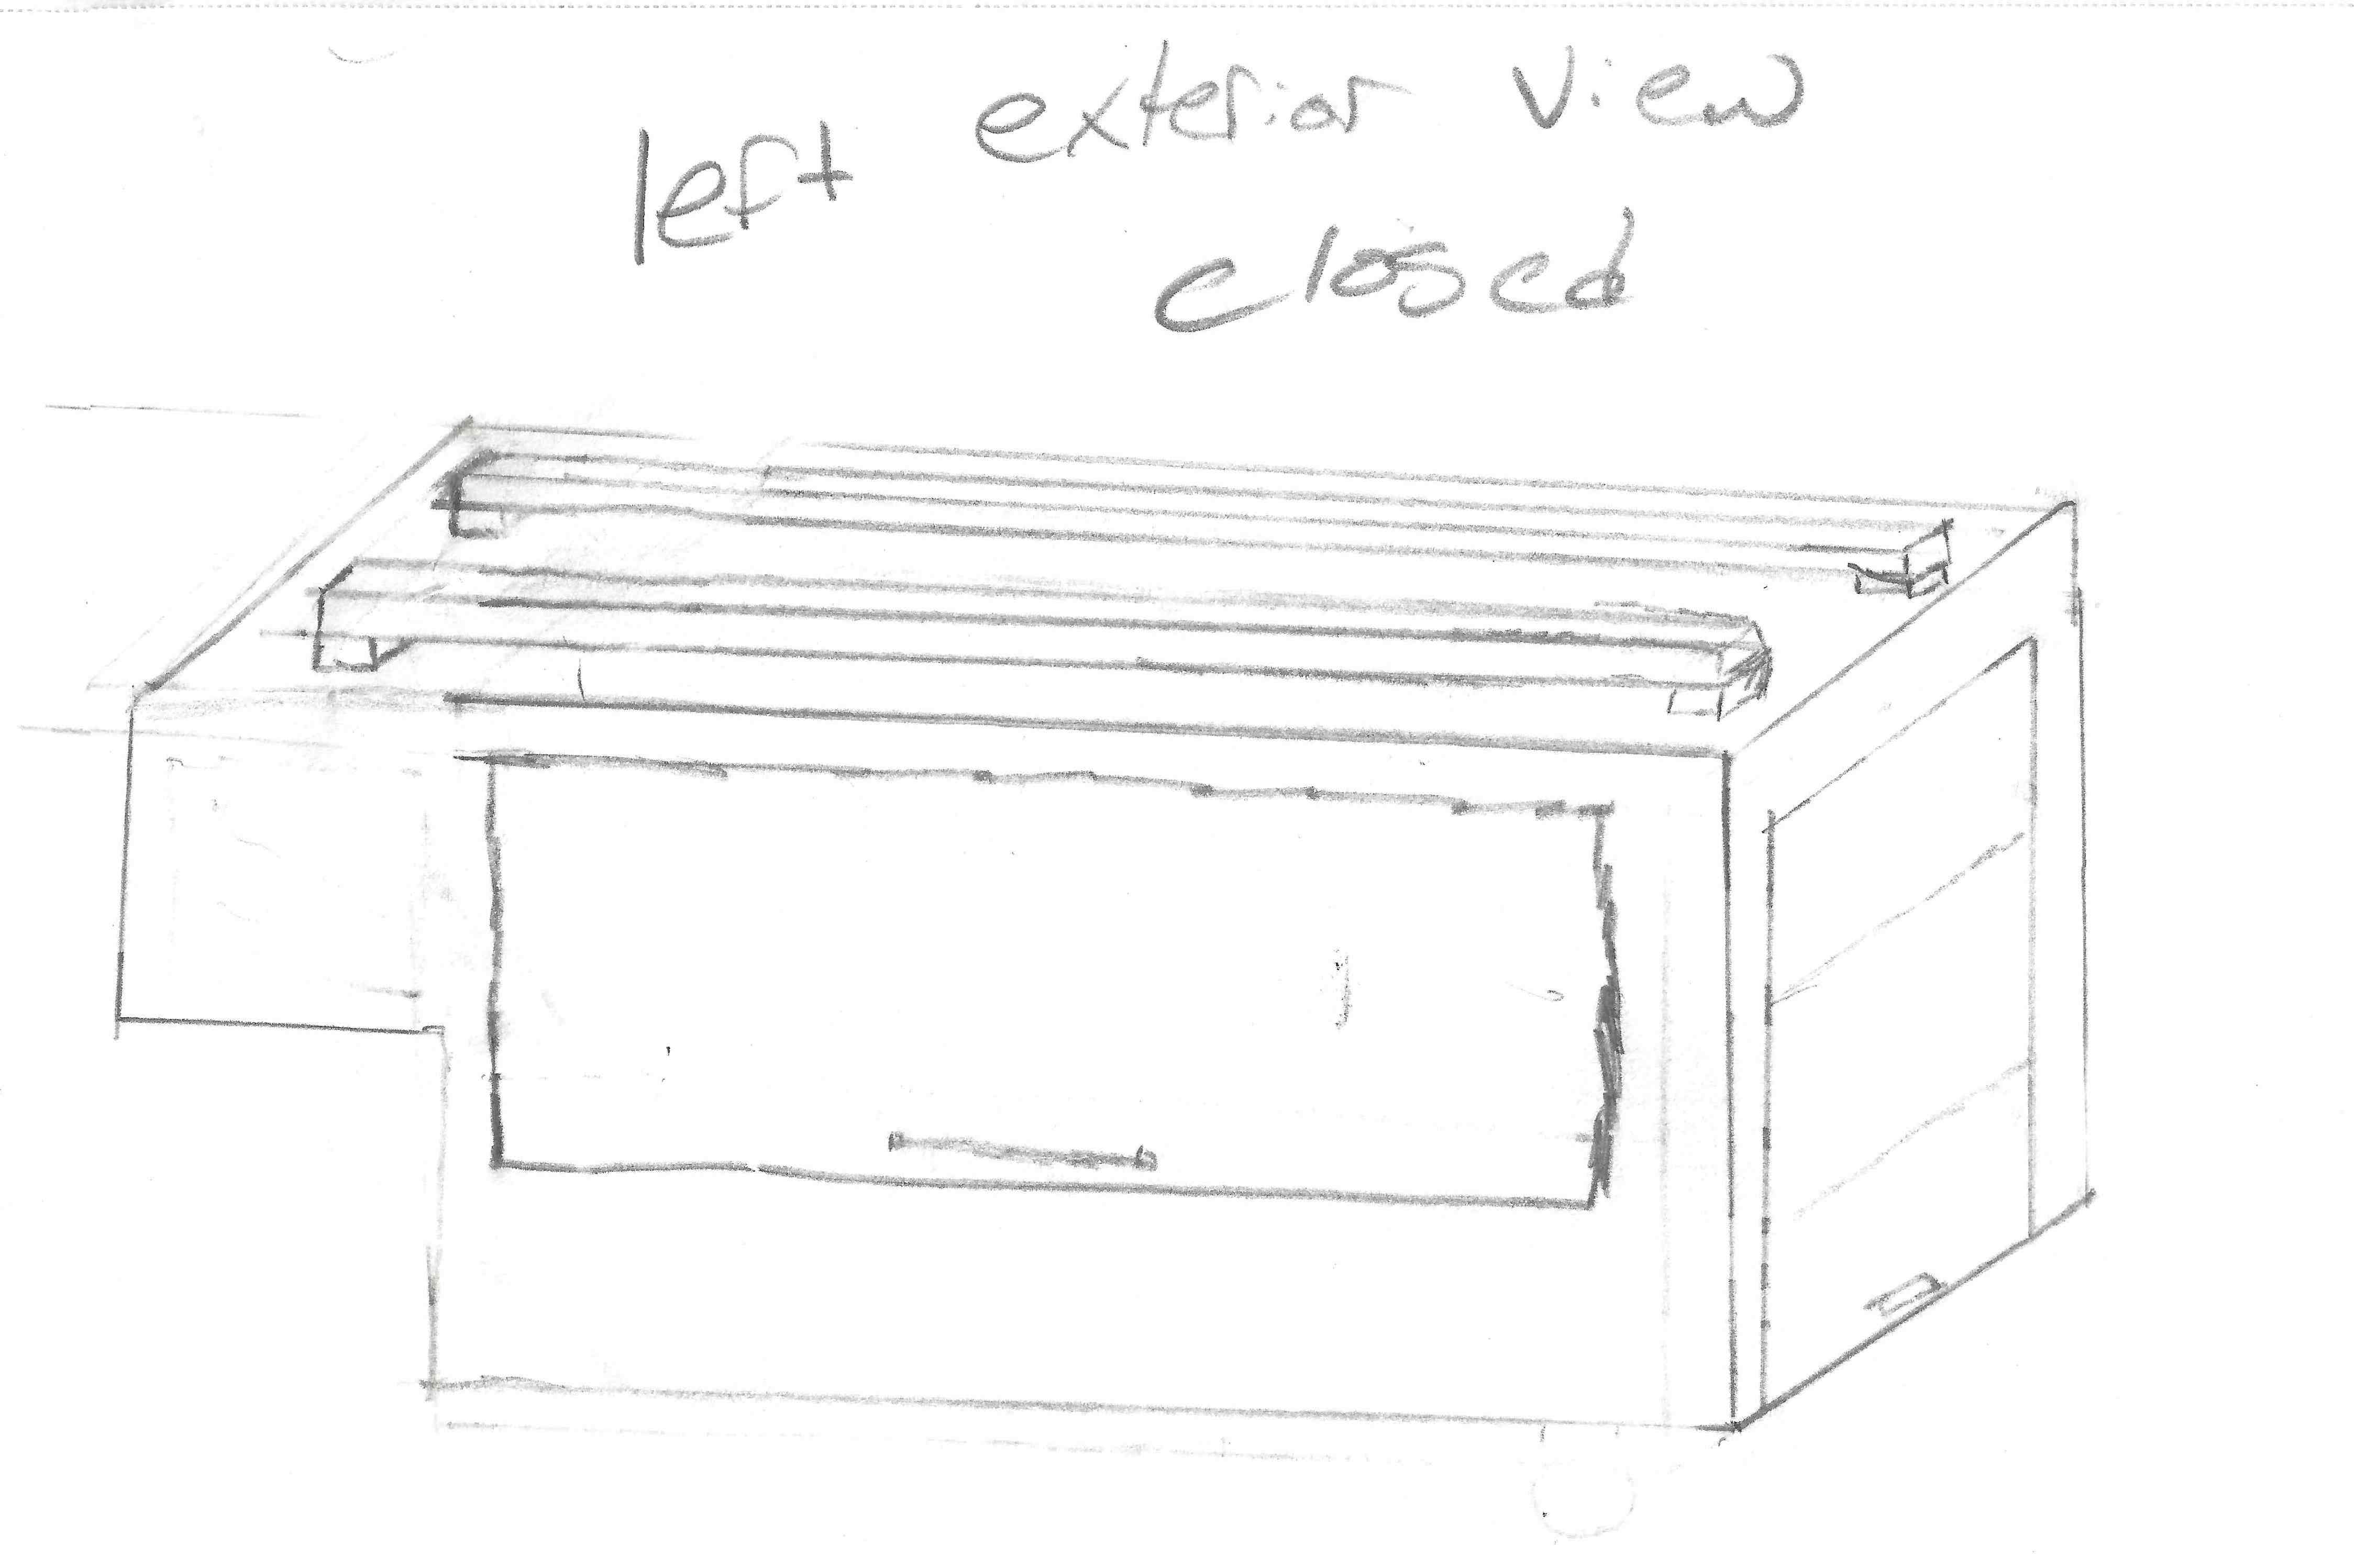 left exterior view
closed